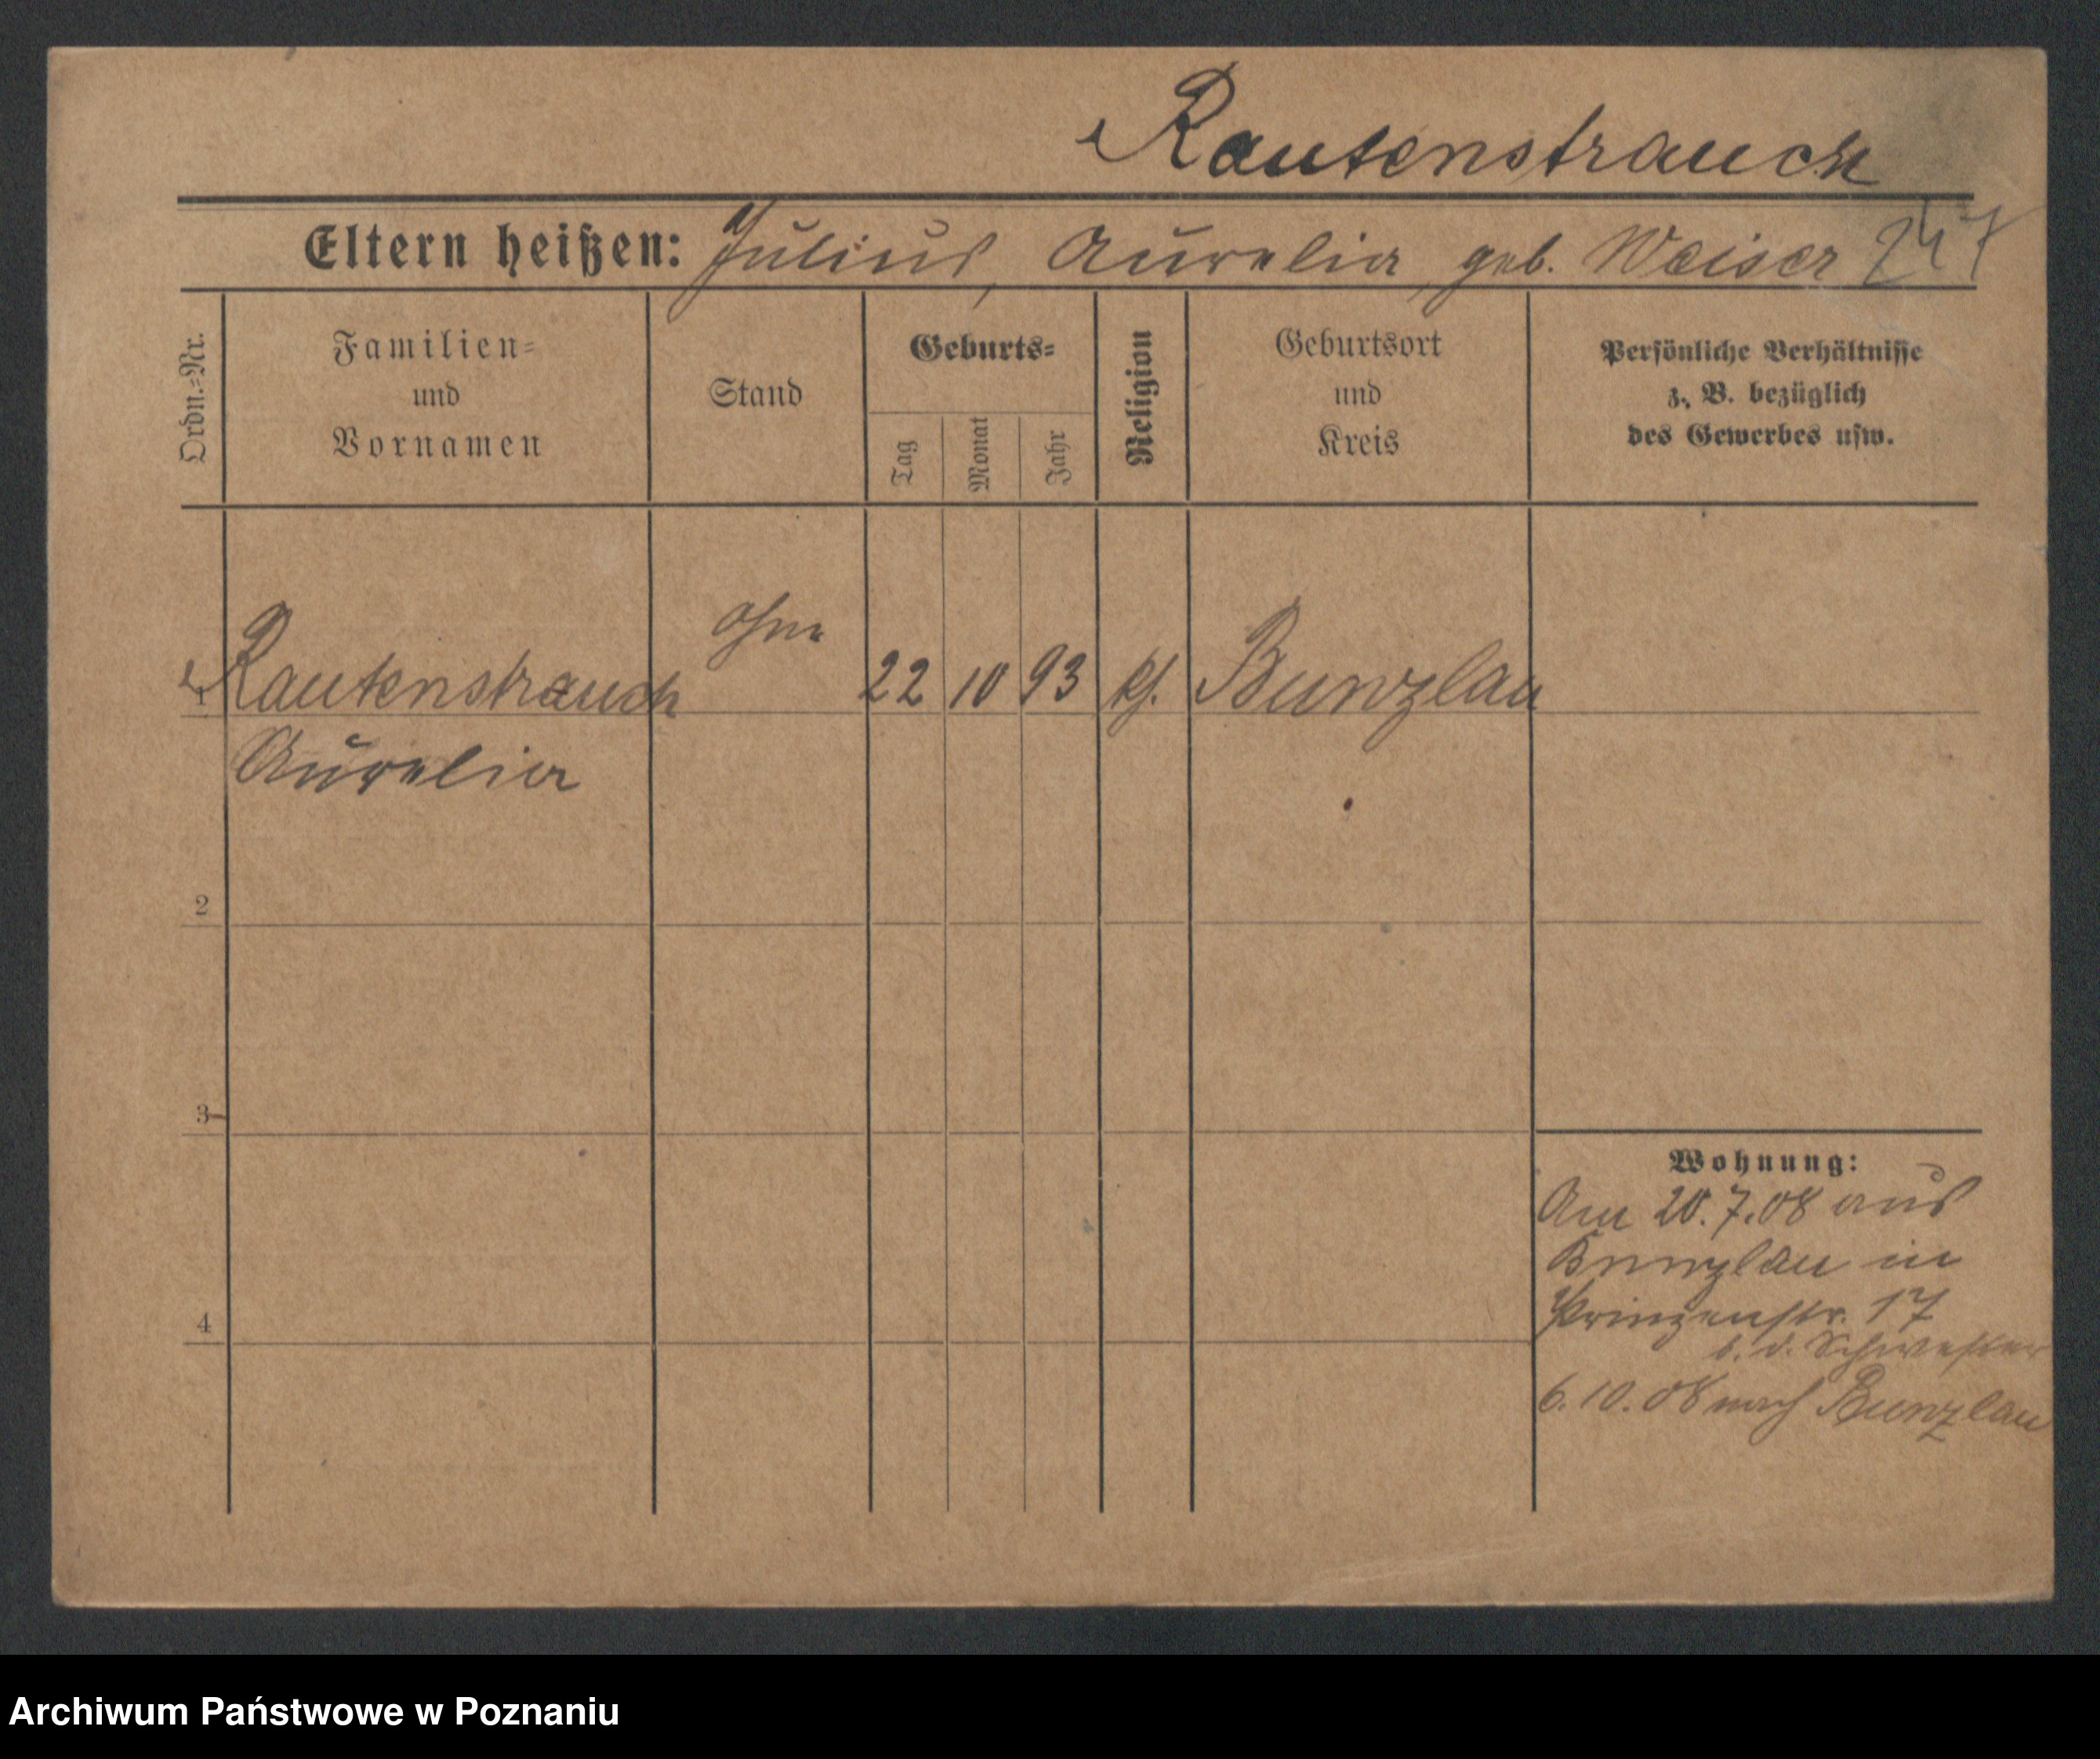 Rautenstrauch
Eltern heißen: Julius, Aurelia, geb. Weiser 247
Ordn.-Nr.
Familien-
und
Vornamen
Stand
Geburts-
Tag
Monat
Jahr
Religion
Geburtsort
und
Kreis
Persönliche Verhältnisse
z. B. bezüglich
des Gewerbes usw.
ohne
1 Rautenstrauch 22 10 93 Bunzlau
Aurelia
2
3
4
Wohnung:
Am 20.7.08 aus
Bunzlau in
Prinzenstr. 17
b. d. Schwester
6.10.08 nach Bunzlau
Archiwum Państwowe w Poznaniu